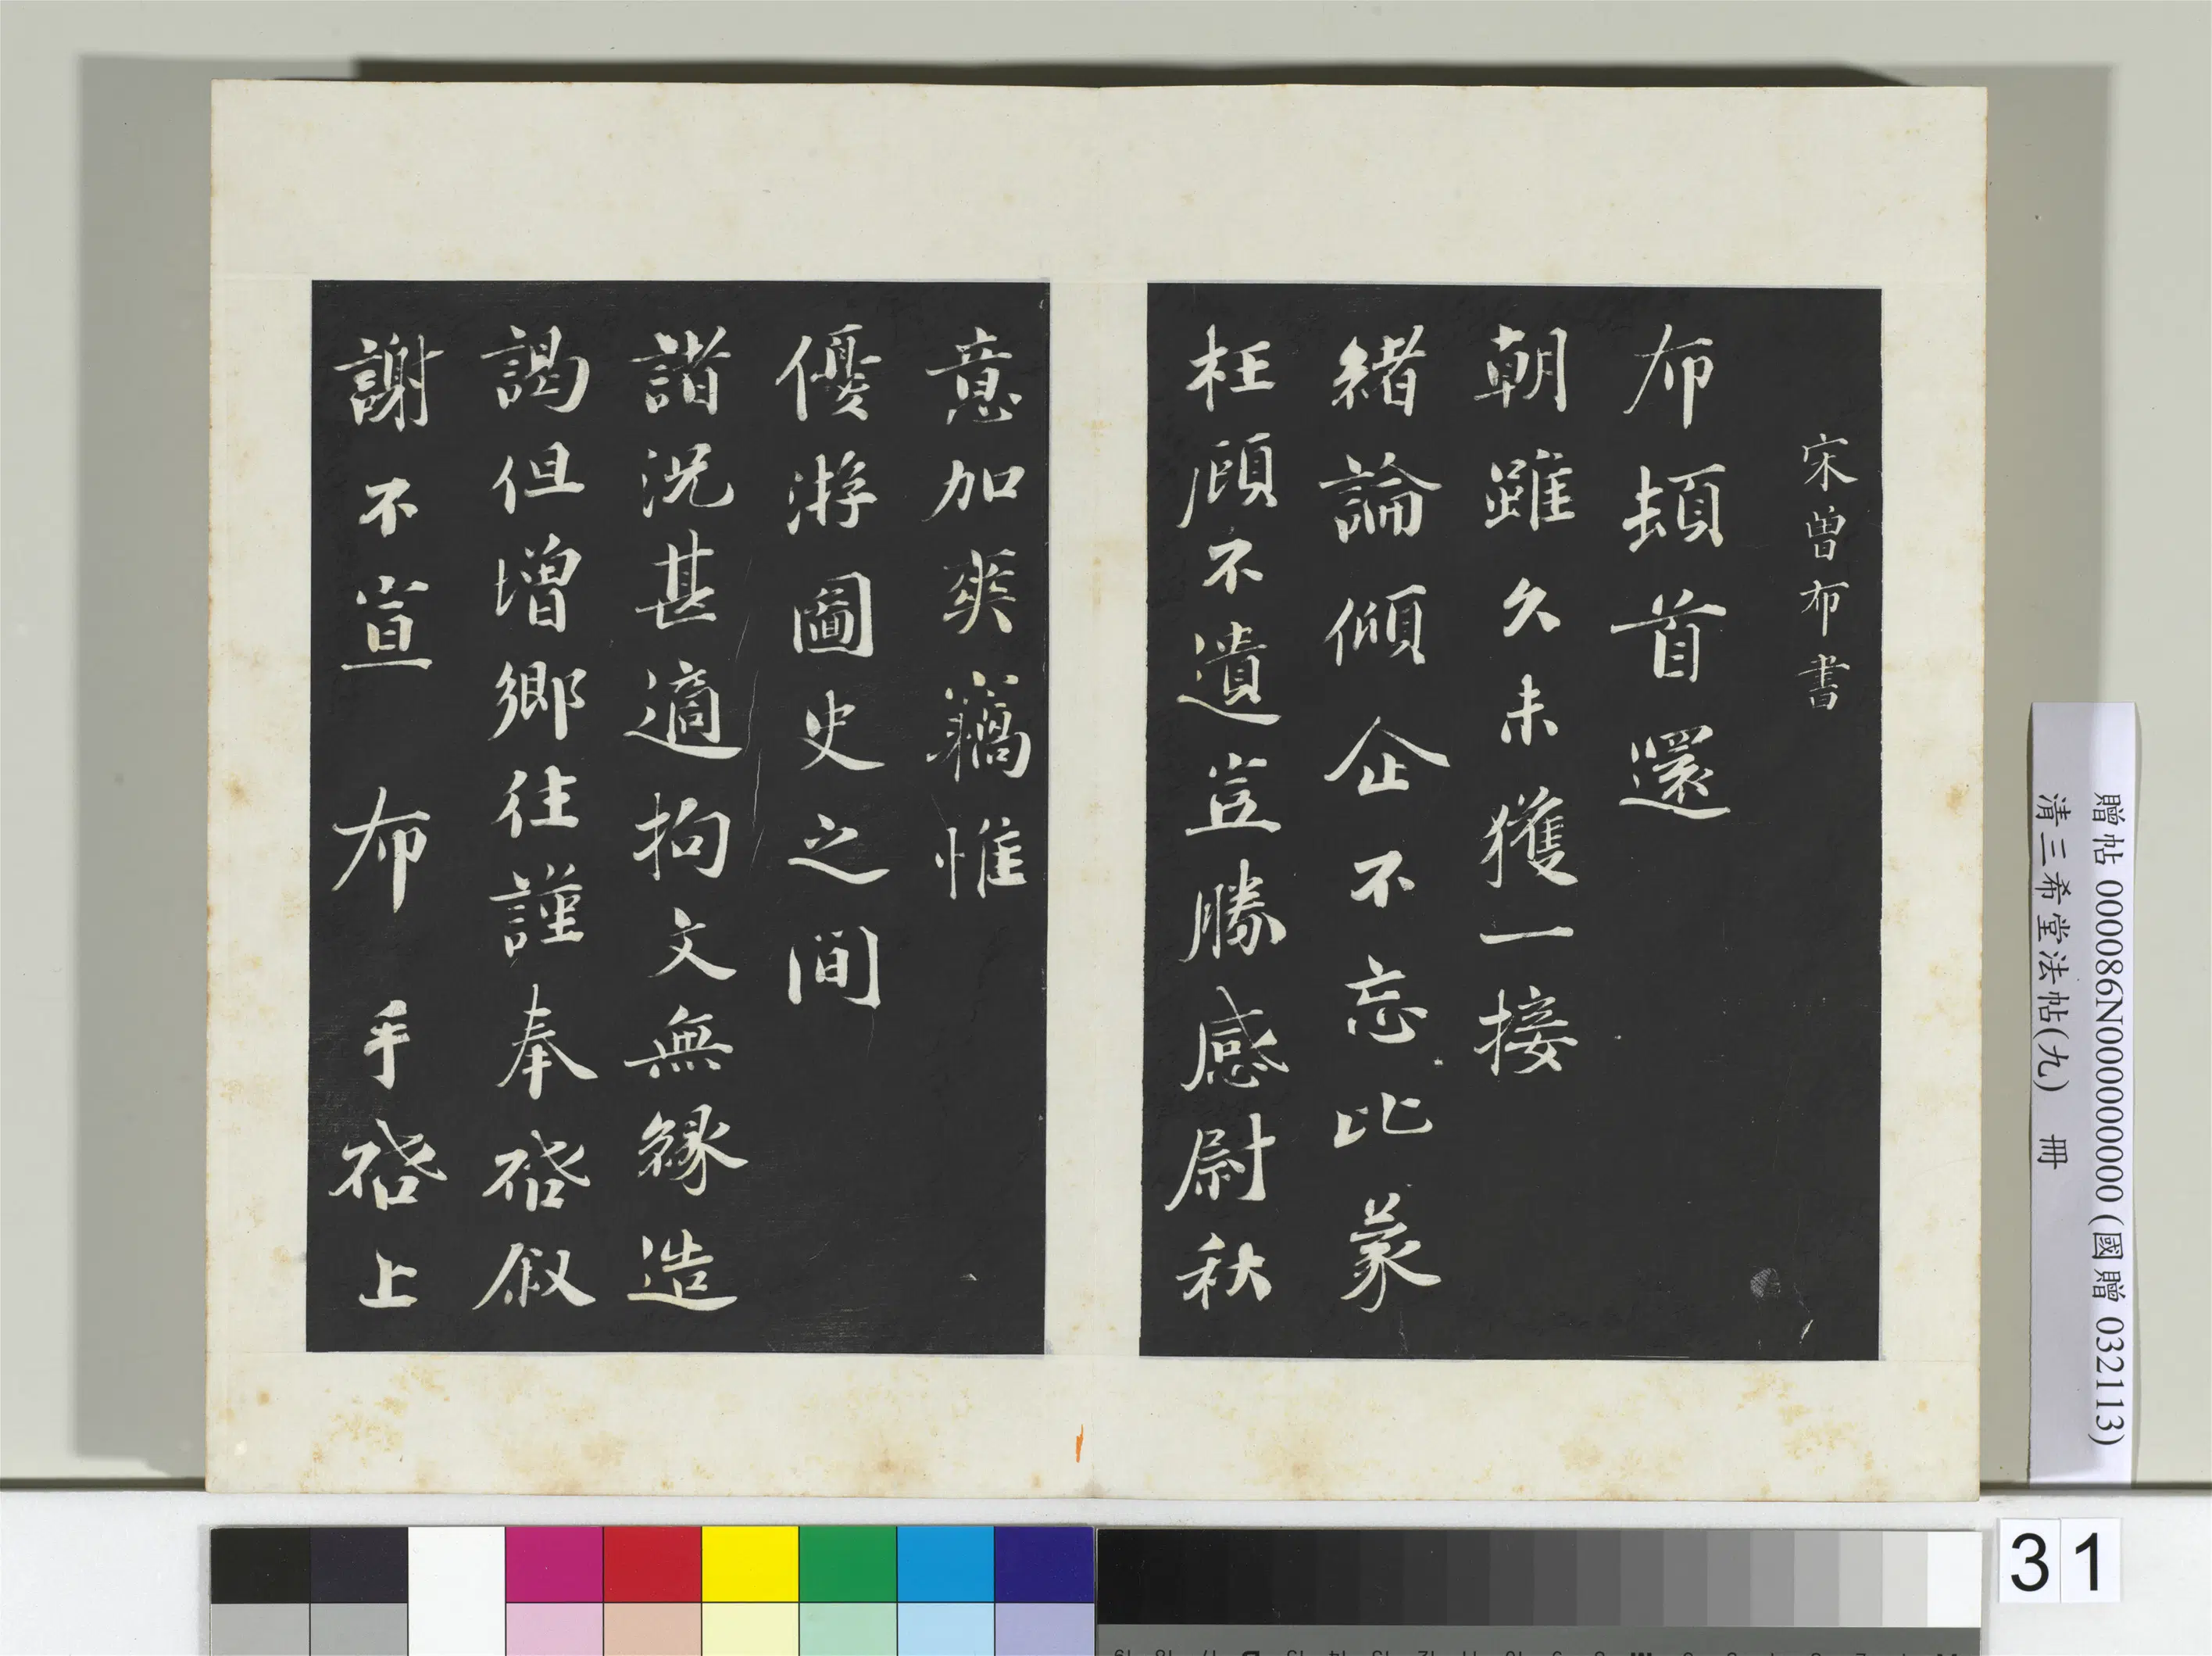 宋曾布書
布頓首還
朝雖久未獲一接
緒論傾企不忘比蒙
枉顧不遺豈勝感尉秋
意加爽竊惟
優游圖史之間
諧況甚適拘文無緣造
謁但增鄉往謹奉啓叙
謝不宣 布 手啓上
贈帖 000086N000000000 (國贈 032113)
清三希堂法帖(九) 冊
31